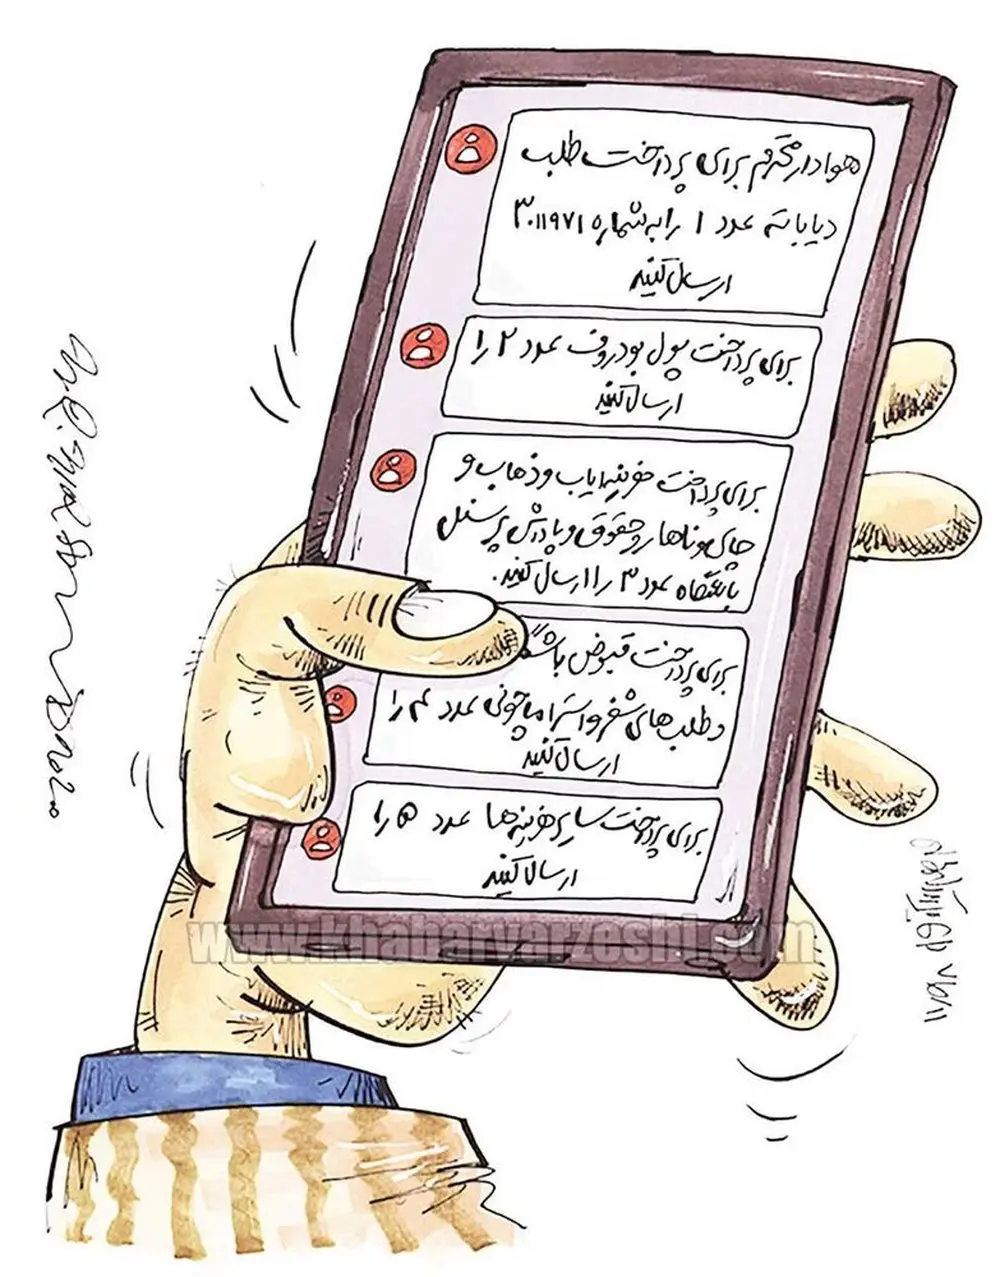 هوادار محترم برای پرداخت طلب
دیاباته عدد ۱ را به شماره ۳۰۱۱۹۷۱
ارسال کنید
برای پرداخت پول بودروف عدد ۲ را
ارسال کنید
برای پرداخت هزینه ایاب و ذهاب و
چای و ناهار و حقوق و پاداش پرسنل
باشگاه عدد ۳ را ارسال کنید.
برای پرداخت قبوض باشگا
و طلب های شفر و استراماچونی عدد ۴ را
ارسال کنید
برای پرداخت سایر هزینه ها عدد ۵ را
ارسال کنید
www.khabarvarzeshi.com